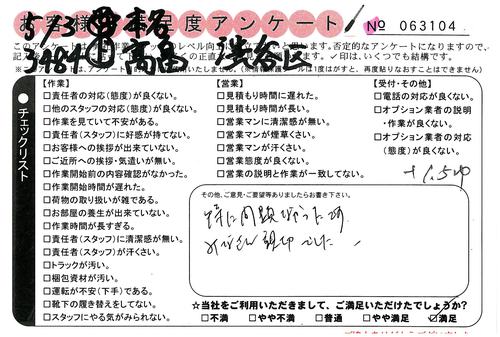 お客様満足度アンケート
№ 063104
5/3 本谷
3484 高畠 渋谷区
チェックリスト
【作業】
□責任者の対応(態度)が良くない。
□他のスタッフの対応(態度)が良くない。
□作業を見ていて不安がある。
□責任者(スタッフ)に好感が持てない。
□お客様への挨拶が出来ていない。
□ご近所への挨拶・気遣いが無い。
□作業開始前の内容確認がなかった。
□作業開始時間が遅れた。
□荷物の取り扱いが雑である。
□お部屋の養生が出来ていない。
□作業時間が長すぎる。
□責任者(スタッフ)に清潔感が無い。
□責任者(スタッフ)が汗くさい。
□トラックが汚い。
□梱包資材が汚い。
□運転が不安(下手)である。
□靴下の履き替えをしてない。
□スタッフにやる気がみられない。
【営業】
□見積もり時間に遅れた。
□見積もり時間が長い。
□営業マンに清潔感が無い。
□営業マンが煙草くさい。
□営業マンが汗くさい。
□営業態度が良くない。
□営業の説明と作業が一致してない。
【受付・その他】
□電話の対応が良くない。
□オプション業者の説明
・作業が良くない。
□オプション業者の対応
(態度)が良くない。
その他、ご意見・ご要望等ありましたらお書き下さい。
特に問題なかったです
☆当社をご利用いただきまして、ご満足いただけたでしょうか?
□不満 □やや不満 □普通 □やや満足 □満足